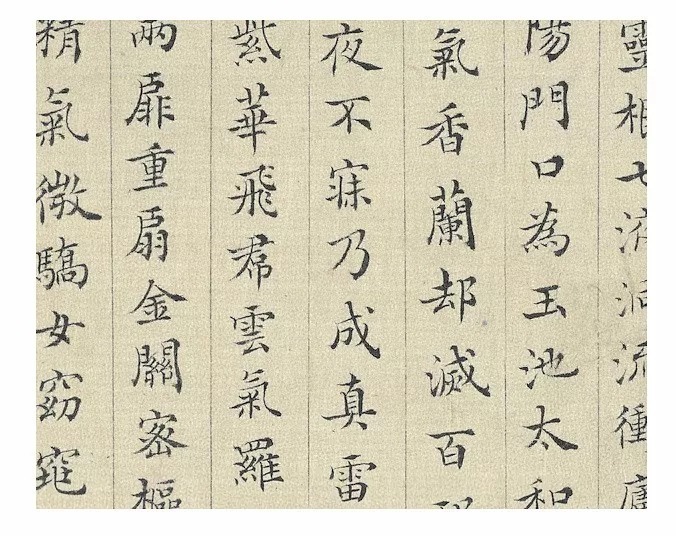 靈根七液洞流衝廬
陽門口為玉池太和
氣香蘭却滅百邪
夜不寐乃成真雷
紫華飛帬雲氣羅
兩扉重扇金關密樞
精氣微驕女窈窕